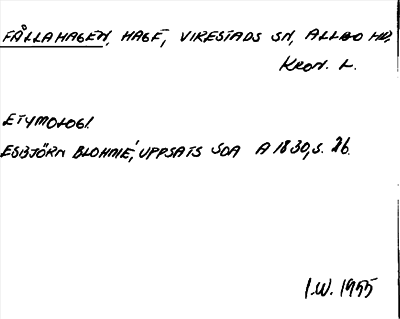 FÅLLAHAGEN, HAGE, VIRESTADS SN, ALLBO HD.
KRON. L.
ETYMOLOGI.
ESBJÖRN BLOHMÉ, UPPSATS SOA A 1830, S. 26.
I.W. 1955